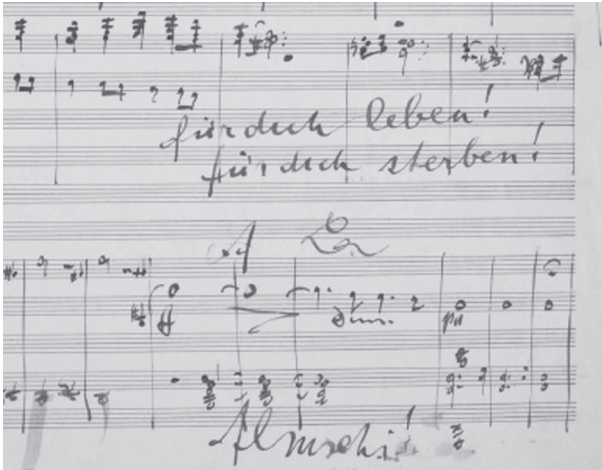 für dich leben!
für dich sterben!
ff dim. pp
Almschi!